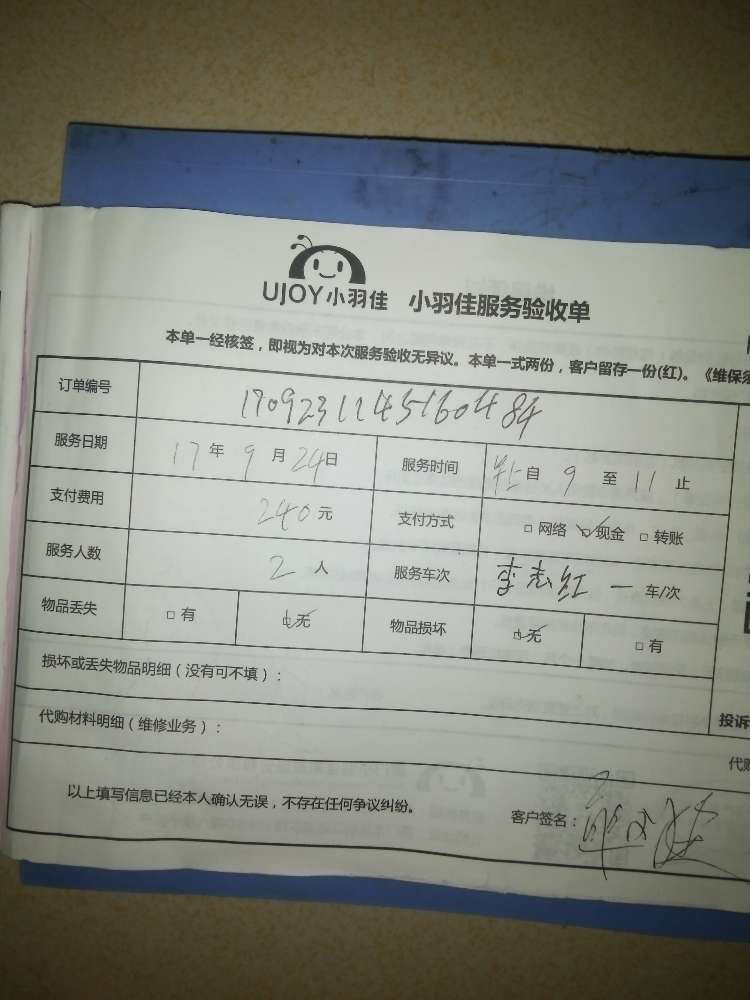 UJOY小羽佳 小羽佳服务验收单
本单一经核签，即视为对本次服务验收无异议。本单一式两份，客户留存一份(红)。《维保须
订单编号 170923114516048４
服务日期 17年9月24日 服务时间 自 9 至 11 止
支付费用 240元 支付方式 □网络 ☑现金 □转账
服务人数 2人 服务车次 李志红 一 车/次
物品丢失 □有 ☑无 物品损坏 ☑无 □有
损坏或丢失物品明细（没有可不填）：
投诉
代购材料明细（维修业务）：
代购
以上填写信息已经本人确认无误，不存在任何争议纠纷。 客户签名：